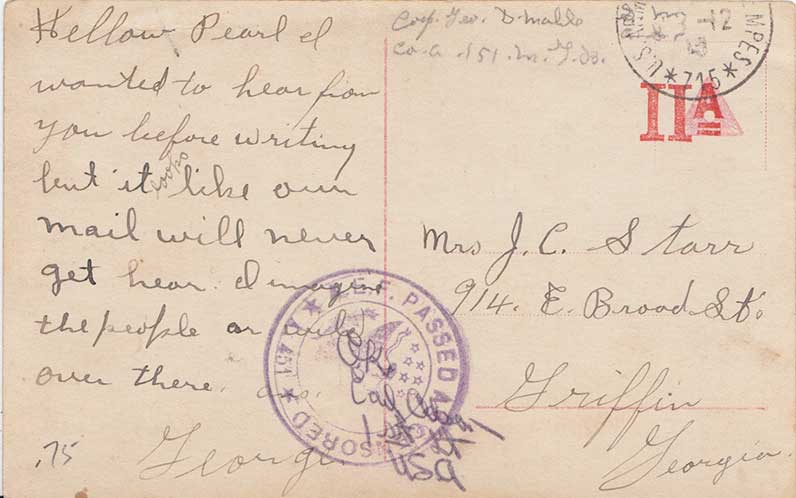 Hellow Pearl I
wanted to hear from
you before writing
but it looks like our
mail will never
get hear. I imagine
the people or
over there. ans.
George
.75
Corp. Geo. D. Mable
Co. A. 151. M. G. Bn.
U.S. 12
* 715 *
IIA
Mrs J. C. Starr
914. E. Broad St.
Griffin
Georgia.
A.E.F. PASSED AS CENSORED * A 451 *
OK
1st
USA